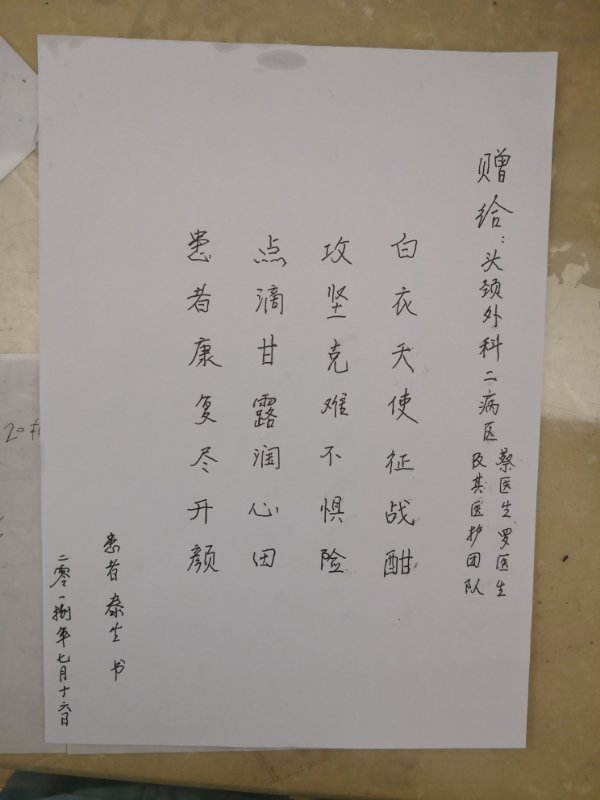 赠给：头颈外科二病医
蔡医生罗医生
及其医护团队
白衣天使征战酣
攻坚克难不惧险
点滴甘露润心田
患者康复尽开颜
患者泰生书
二零一捌年七月十六日